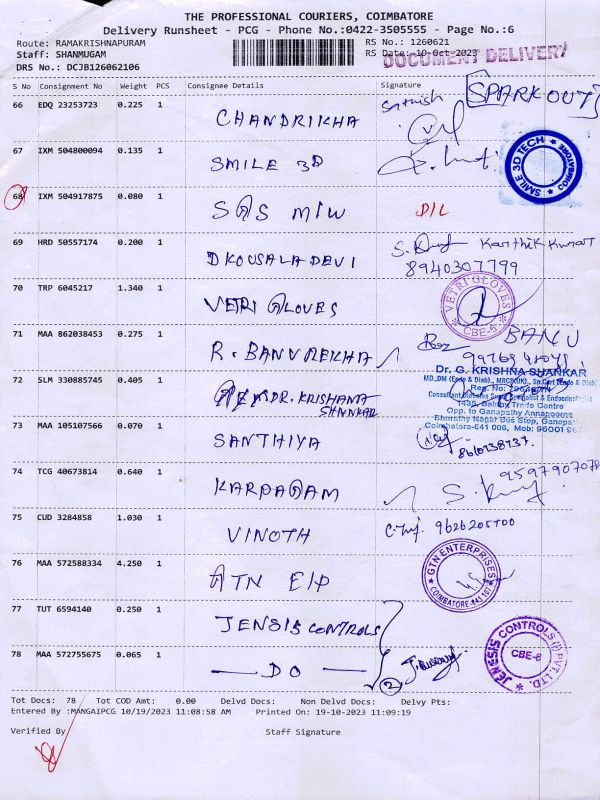 THE PROFESSIONAL COURIERS, COIMBATORE
Delivery Runsheet - PCG - Phone No.:0422-3505555 - Page No.:6
Route: RAMAKRISHNAPURAM RS No.: 1260621
Staff: SHANMUGAM RS Date: 19-Oct-2023
DOCUMENT DELIVERY
DRS No.: DCJB126062106
S No Consignment No Weight PCS Consignee Details Signature
66 EDQ 23253723 0.225 1 CHANDRIKHA Sathish SPARKOUT
67 IXM 504800094 0.135 1 SMILE 3D
SMILE 3D TECH COIMBATORE
68 IXM 504917875 0.080 1 SAS MIW D/L
69 HRD 50557174 0.200 1 D KOUSALA DEVI Karthik Kumar
8940307799
70 TRP 6045217 1.340 1 VETRI GLOVES
VETRI GLOVES CBE-6
71 MAA 862038453 0.275 1 R. BANUREKHA BANU
72 SLM 330885745 0.405 1 DR. KRISHANA SHANKAR
Dr. G. KRISHNA SHANKAR
Opp. to Ganapathy
Bharathy Nagar Bus Stop, Ganapa
Coimbatore-641 006, Mob:
73 MAA 105107566 0.070 1 SANTHIYA
74 TCG 40673814 0.640 1 KARPAGAM
75 CUD 3284858 1.030 1 VINOTH 9626205700
76 MAA 572588334 4.250 1 ATN E/P
GTN ENTERPRISES COIMBATORE
77 TUT 6594140 0.250 1 JENSIS CONTROLS
JENESIS CONTROLS (I) PVT. LTD. CBE-6
78 MAA 572755675 0.065 1 — DO — 2
Tot Docs: 78 Tot COD Amt: 0.00 Delvd Docs: Non Delvd Docs: Delvy Pts:
Entered By :MANGAIPCG 10/19/2023 11:08:58 AM Printed On: 19-10-2023 11:09:19
Verified By Staff Signature